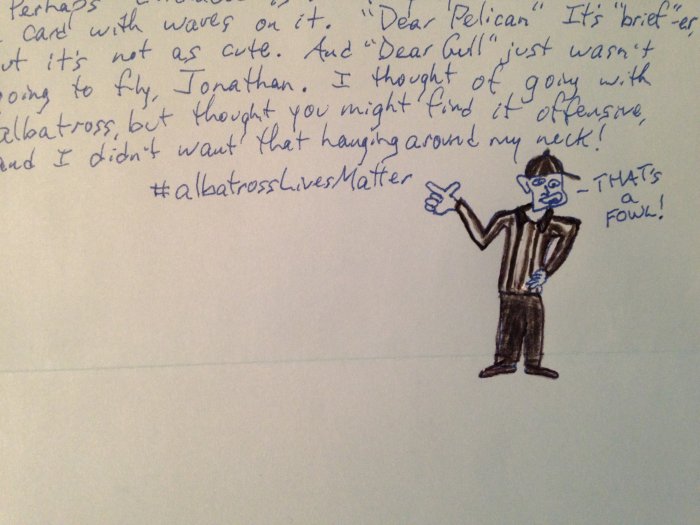 Perhaps
card with waves on it. "Dear Pelican" It's "brief"-er,
ut it's not as cute. And "Dear Gull" just wasn't
going to fly, Jonathan. I thought of going with
albatross, but thought you might find it offensive,
and I didn't want that hanging around my neck!
#albatrossLivesMatter
- THAT'S
a
FOWL!